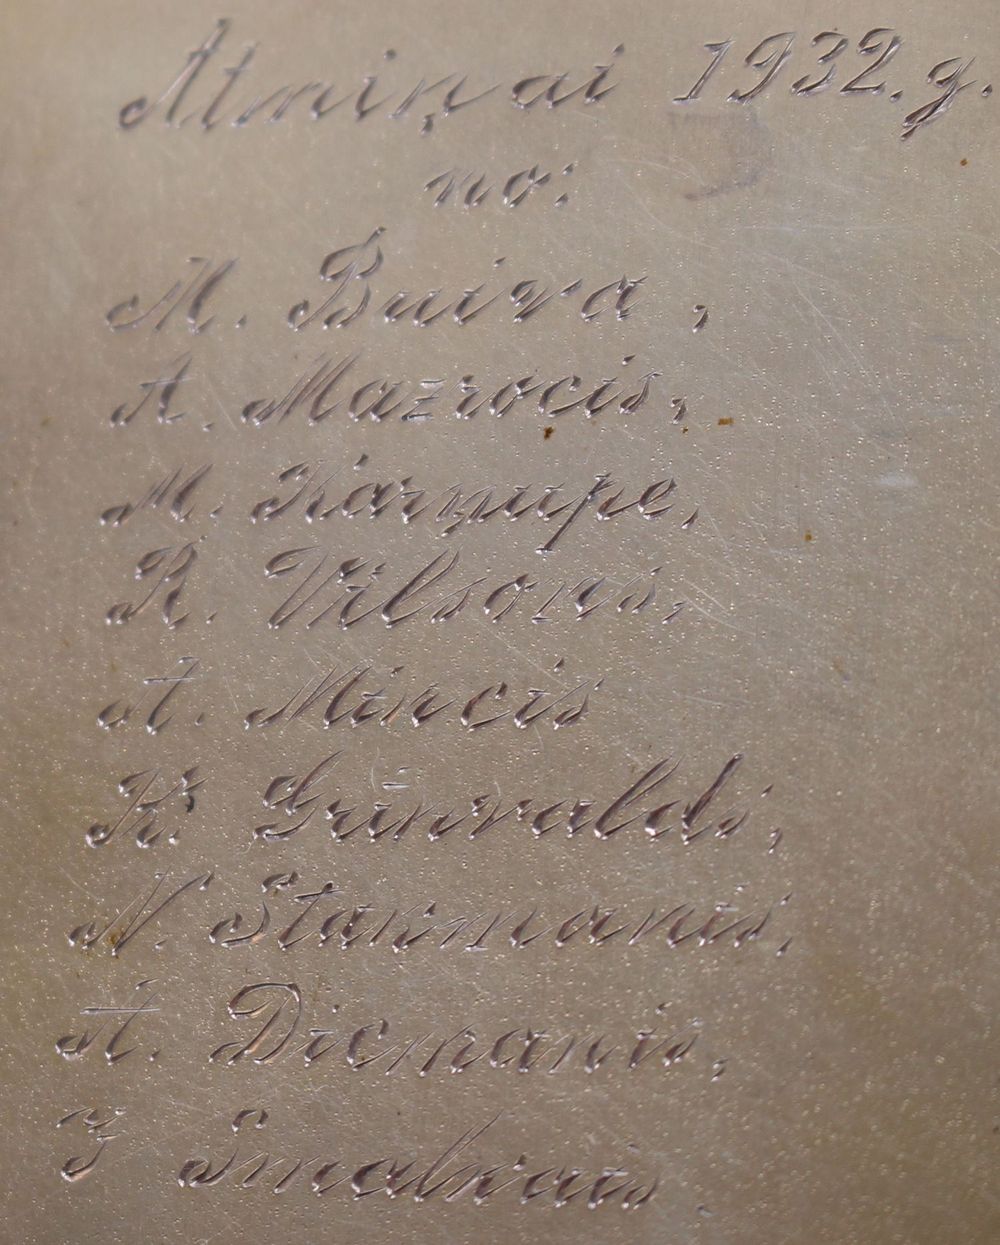 Atmiņai 1932. g.
no:
M. Buiva,
A. Mazrocis,
M. Kārņupe,
R. Vilsons,
A. Mincis
K. Grīnvalds,
N. Starmanis,
A. Dicmanis,
J Smalkais